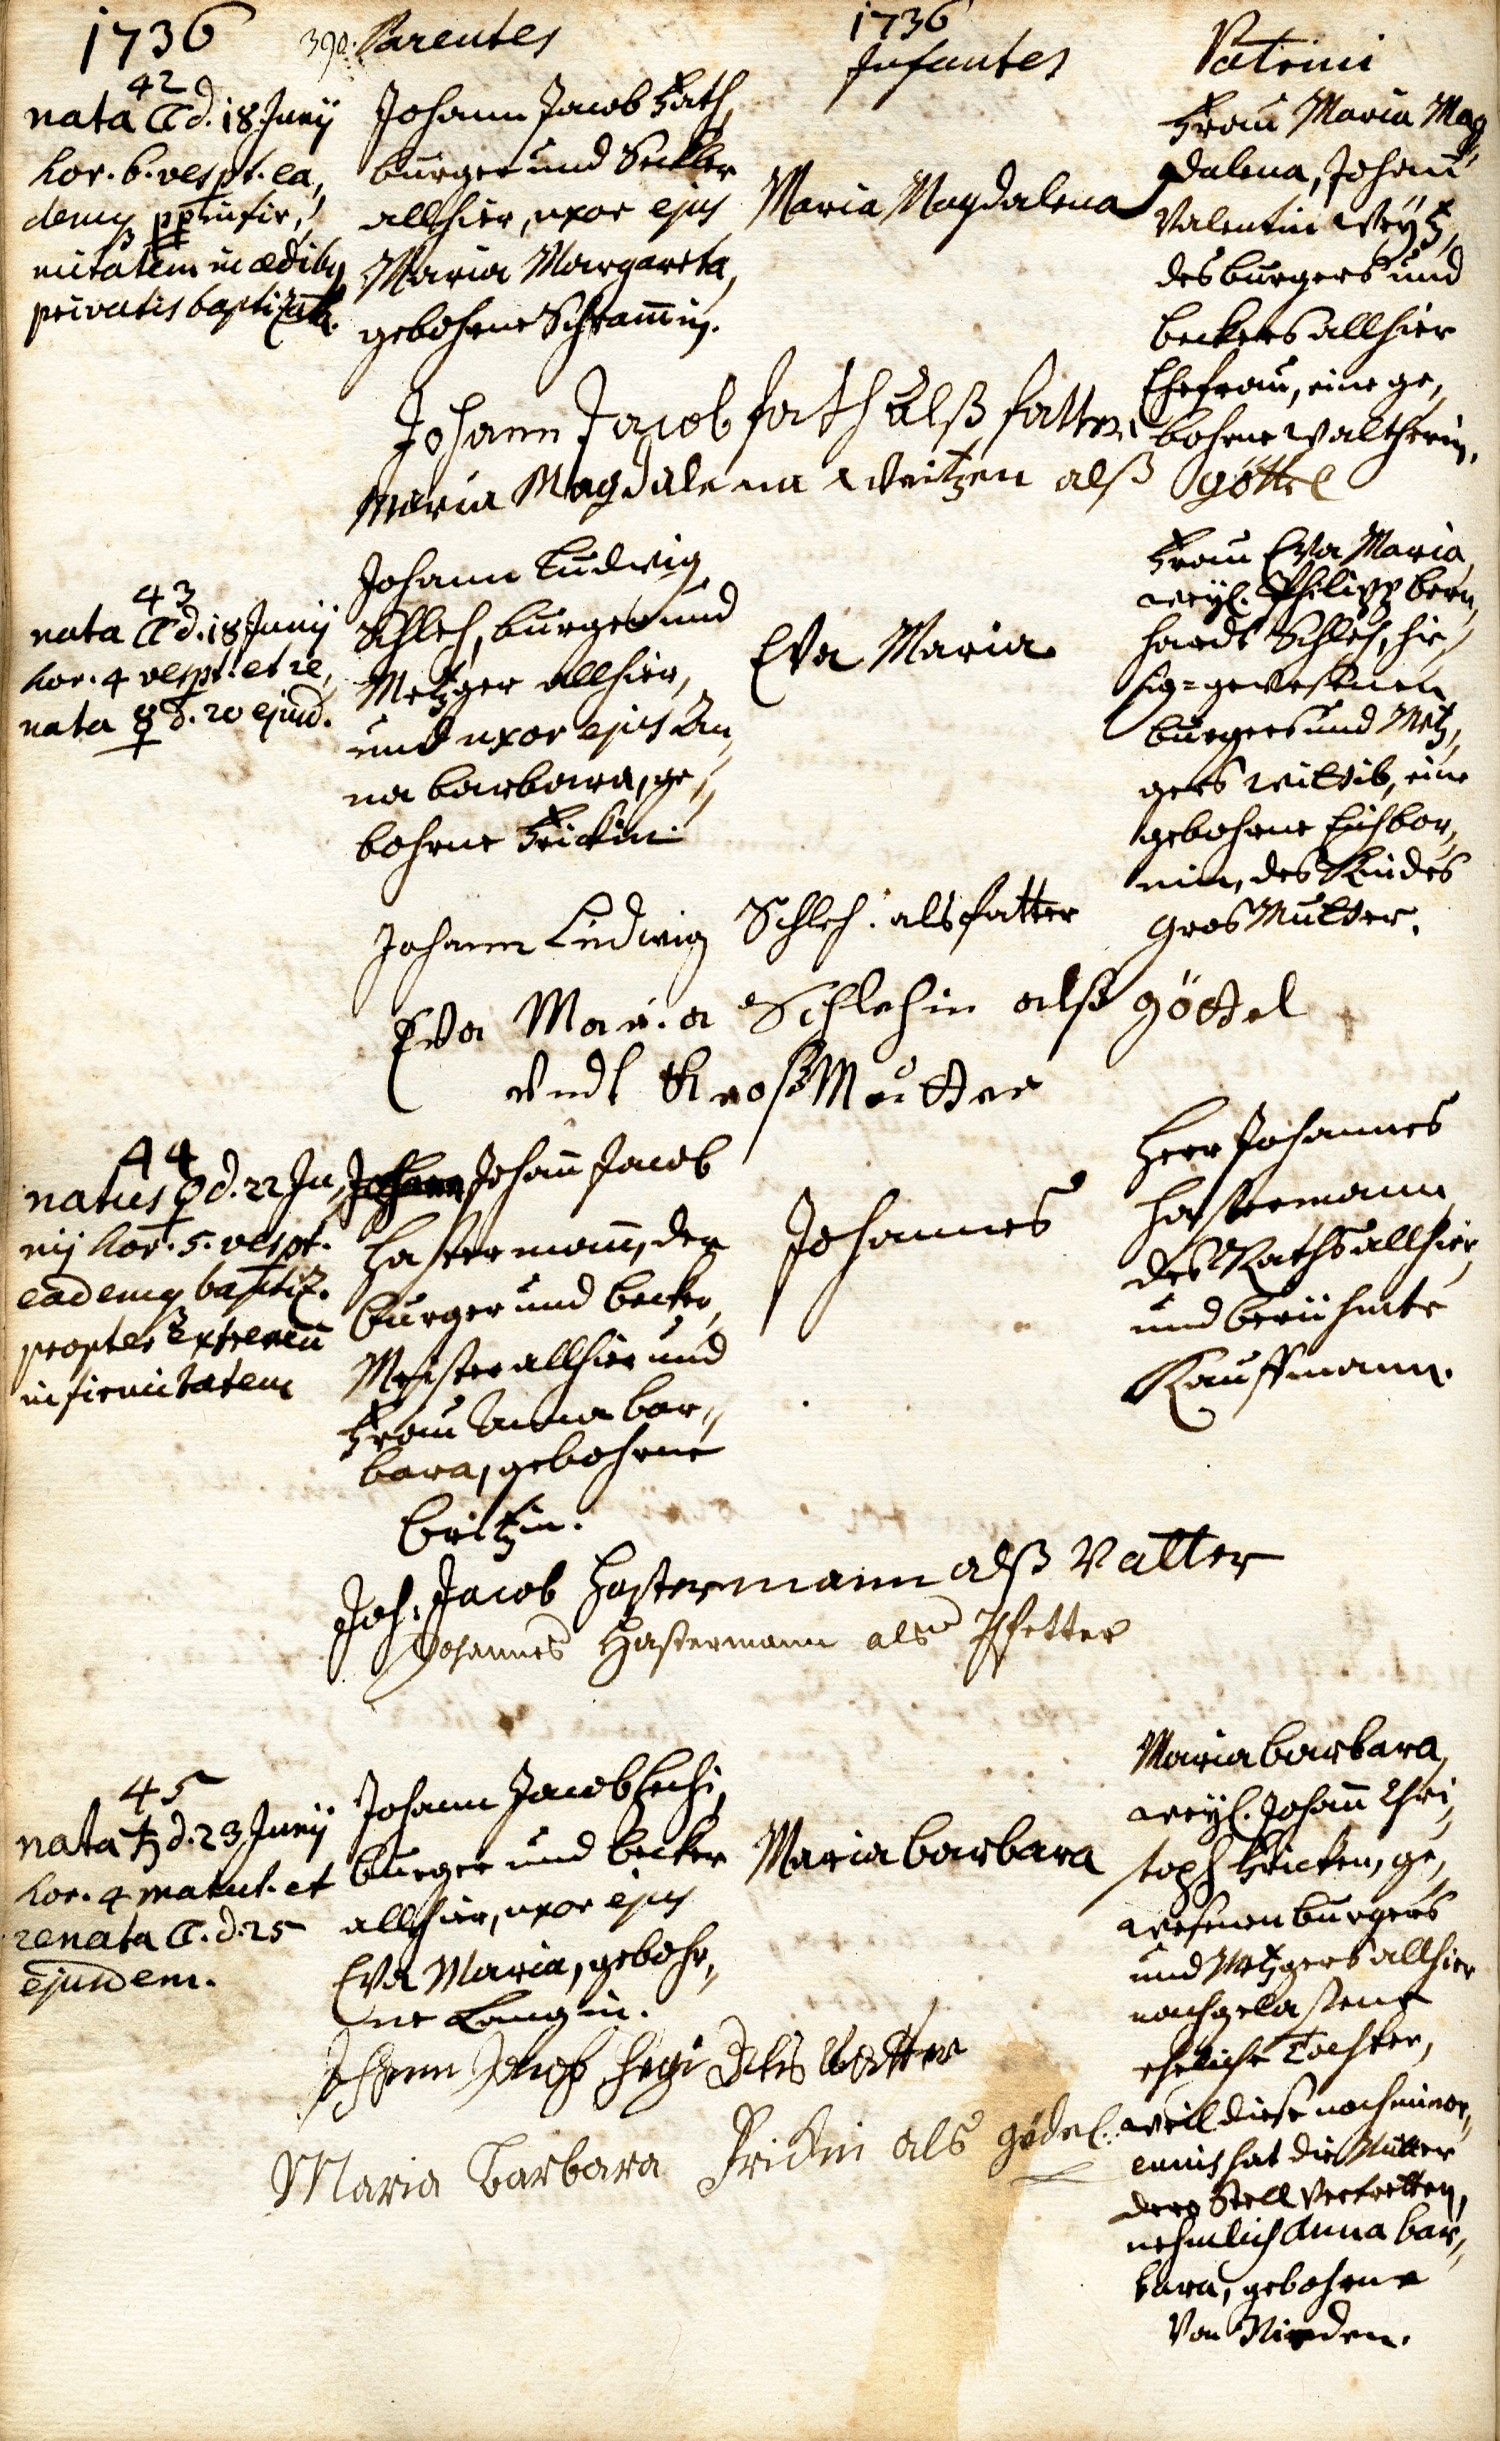 1736
390. Parentes
1736
Infantes
Patrini
42
nata ☾ d. 18 Junij
hor. 6. vespt. ea,
demq ppt infir,
mitatem in ædibq
privatis baptizata.
Johann Jacob Fath,
burger und Seckler
allhier, uxor ejus
Maria Margareta,
gebohrne Schram̄in.
Maria Magdalena
Frau Maria Mag,
dalena, Johañ
Valentin Weytz,
des burgers und
beckers allhier
Ehefrau, eine ge,
bohrne Waltherin.
Johann Jacob fath Alß fatter
Maria Magdalena Weitzen alß göttel
43
nata ☾ d. 18 Junij
hor. 4 vespt. et re,
nata ☿ d. 20 ejusd.
Johann Ludwig
Schleh, burger und
Metzger allhier,
und uxor ejus An,
na barbara, ge,
bohrne Frickin.
Eva Maria
Frau Eva Maria,
weyl. Philipp bern,
hardt Schleh, hie,
sig=gewesenen
burgers und Metz,
gers wittib, eine
gebohrne Eichbor,
nin, des Kindes
GrosMutter.
Johann Ludwig Schleh. als fatter
Eva Maria Schlehin alß göttel
Vndt GroßMutter
44
natus ♀ d. 22 Ju,
nij hor. 5. vespt.
eademq baptiz.
propter extremū
infirmitatem
Johann Johañ Jacob
Hastermañ, der
burger und becker,
Meister allhier und
Frau Anna bar,
bara, gebohrne
britzin.
Johannes
Herr Johannes
Hastermann,
des Raths allhier,
und berühmte
Kauffmann.
Joh. Jacob Hastermann alß Vatter
Johannes Hastermann als Pfetter
45
nata ♄ d. 23 Junij
hor. 4 matut. et
renata ☾. d. 25
ejusdem.
Johann Jacob
burger und becker
allhier, uxor ejus
Eva Maria, gebohr,
ne Langin.
Maria barbara
Maria barbara,
weyl. Johañ Chri,
stoph Fricken, ge,
wesenen burgers
und Metzgers allhier
nachgelassene
eheliche Tochter,
weil diese noch minor,
ennis hat die Mutter
dero Stell vertretten,
nehmlich Anna bar,
bara, gebohrne
von Nieden.
Johann Jacob als Vatter
Maria Barbara Frickin als gödel.